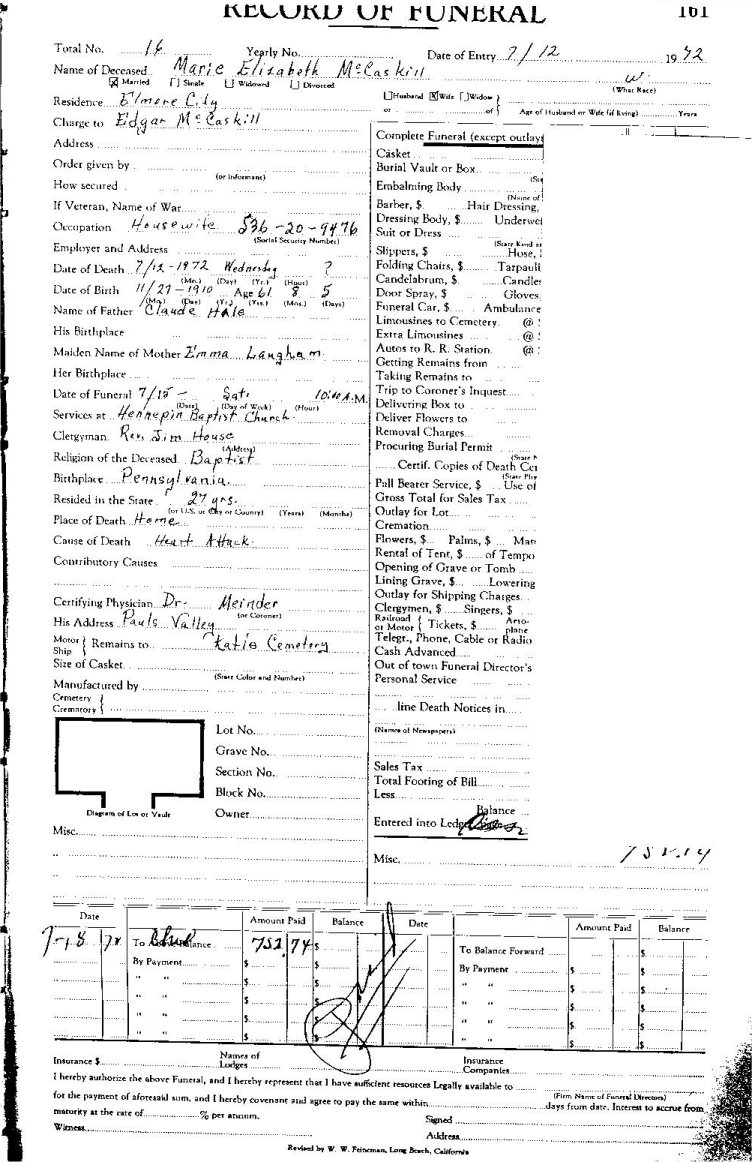 RECORD OF FUNERAL 161
Total No. 16 Yearly No. Date of Entry 7/12 1972
Name of Deceased Marie Elizabeth McCaskill W.
Married Single Widowed Divorced (What Race)
Residence Elmore City
Husband Wife Widow
or of Age of Husband or Wife (if living) Years
Charge to Edgar McCaskill
Address
Order given by
(or Informant)
How secured
If Veteran, Name of War
Occupation Housewife 536-20-9476
(Social Security Number)
Employer and Address
Date of Death 7/12-1972 Wednesday ?
(Mo.) (Day) (Yr.) (Hour)
Date of Birth 11/27-1910 Age 61 8 5
(Mo.) (Day) (Yr.) (Yrs.) (Mos.) (Days)
Name of Father Claude Hale
His Birthplace
Maiden Name of Mother Emma Langham
Her Birthplace
Date of Funeral 7/15 - Sat. 10:00 A.M.
(Date) (Day of Week) (Hour)
Services at Hennepin Baptist Church.
Clergyman Rev. Jim House
(Address)
Religion of the Deceased Baptist
Birthplace Pennsylvania
Resided in the State 27 yrs.
(or U.S. or City or County) (Years) (Months)
Place of Death Home
Cause of Death Heart Attack.
Contributory Causes
Certifying Physician Dr. Meinder
(or Coroner)
His Address Pauls Valley
Motor Ship Remains to Katie Cemetery
Size of Casket
(State Color and Number)
Manufactured by
Cemetery
Crematory
Lot No.
Grave No.
Section No.
Block No.
Diagram of Lot or Vault Owner
Misc.
Complete Funeral (except outlay
Casket
Burial Vault or Box
Embalming Body
(Name of
Barber, $ Hair Dressing,
Dressing Body, $ Underwe
Suit or Dress
(State Kind
Slippers, $ Hose,
Folding Chairs, $ Tarpauli
Candelabrum, $ Candle
Door Spray, $ Gloves,
Funeral Car, $ Ambulance
Limousines to Cemetery @
Extra Limousines @
Autos to R. R. Station @
Getting Remains from
Taking Remains to
Trip to Coroner's Inquest
Delivering Box to
Deliver Flowers to
Removal Charges
Procuring Burial Permit
Certif. Copies of Death Cer
Pall Bearer Service, $ Use of
Gross Total for Sales Tax
Outlay for Lot
Cremation
Flowers, $ Palms, $ Mat
Rental of Tent, $ of Tempo
Opening of Grave or Tomb
Lining Grave, $ Lowering
Outlay for Shipping Charges
Clergymen, $ Singers, $
Railroad or Motor Tickets, $ Aero-plane
Telegr., Phone, Cable or Radio
Cash Advanced
Out of town Funeral Director's
Personal Service
line Death Notices in
(Names of Newspapers)
Sales Tax
Total Footing of Bill
Less
Balance
Entered into Ledger
Misc.
Date Amount Paid Balance Date Amount Paid Balance
7-18 72 To Balance 752 74 $ To Balance Forward $
By Payment $ $ By Payment $ $
" " $ $ " " $ $
" " $ $ " " $ $
" " $ $ " " $ $
" " $ $ " " $ $
Insurance $ Names of Lodges Insurance Companies
I hereby authorize the above Funeral, and I hereby represent that I have sufficient resources Legally available to
(Firm Name of Funeral Directors)
for the payment of aforesaid sum, and I hereby covenant and agree to pay the same within days from date. Interest to accrue from
maturity at the rate of % per annum. Signed
Witness Address
Revised by W. W. Feineman, Long Beach, California